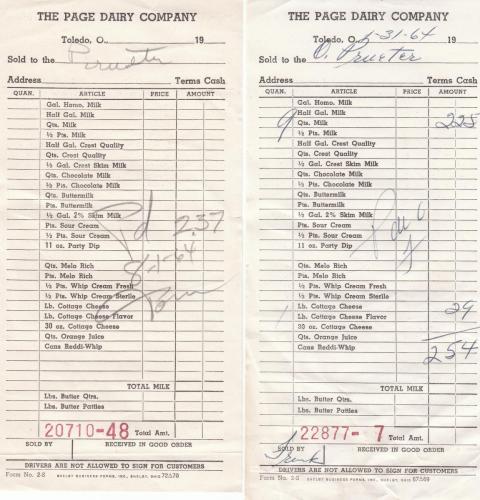 THE PAGE DAIRY COMPANY
Toledo, O. 19
Sold to the Prueter
Address Terms Cash
QUAN. ARTICLE PRICE AMOUNT
Gal. Homo. Milk
Half Gal. Milk
Qts. Milk
½ Pts. Milk
Half Gal. Crest Quality
Qts. Crest Quality
½ Gal. Crest Skim Milk
Qts. Chocolate Milk
½ Pts. Chocolate Milk
Qts. Buttermilk
Pts. Buttermilk
½ Gal. 2% Skim Milk
Pts. Sour Cream
½ Pts. Sour Cream
11 oz. Party Dip
Pd 2.37
8-1-64
Qts. Melo Rich
Pts. Melo Rich
½ Pts. Whip Cream Fresh
½ Pts. Whip Cream Sterile
Lb. Cottage Cheese
Lb. Cottage Cheese Flavor
30 oz. Cottage Cheese
Qts. Orange Juice
Cans Reddi-Whip
TOTAL MILK
Lbs. Butter Qtrs.
Lbs. Butter Patties
20710-48 Total Amt.
SOLD BY RECEIVED IN GOOD ORDER
DRIVERS ARE NOT ALLOWED TO SIGN FOR CUSTOMERS
Form No. 2-S SHELBY BUSINESS FORMS, INC., SHELBY, OHIO
THE PAGE DAIRY COMPANY
Toledo, O. 1-31-64 19
Sold to the O. Prueter
Address Terms Cash
QUAN. ARTICLE PRICE AMOUNT
Gal. Homo. Milk
Half Gal. Milk
9 Qts. Milk 225
½ Pts. Milk
Half Gal. Crest Quality
Qts. Crest Quality
½ Gal. Crest Skim Milk
Qts. Chocolate Milk
½ Pts. Chocolate Milk
Qts. Buttermilk
Pts. Buttermilk
½ Gal. 2% Skim Milk
Pts. Sour Cream
½ Pts. Sour Cream
11 oz. Party Dip
Qts. Melo Rich
Pts. Melo Rich
½ Pts. Whip Cream Fresh
½ Pts. Whip Cream Sterile
Lb. Cottage Cheese 29
Lb. Cottage Cheese Flavor
30 oz. Cottage Cheese
Qts. Orange Juice
Cans Reddi-Whip 254
TOTAL MILK
Lbs. Butter Qtrs.
Lbs. Butter Patties
22877- 7 Total Amt.
SOLD BY RECEIVED IN GOOD ORDER
Frank
DRIVERS ARE NOT ALLOWED TO SIGN FOR CUSTOMERS
Form No. 2-S SHELBY BUSINESS FORMS, INC., SHELBY, OHIO